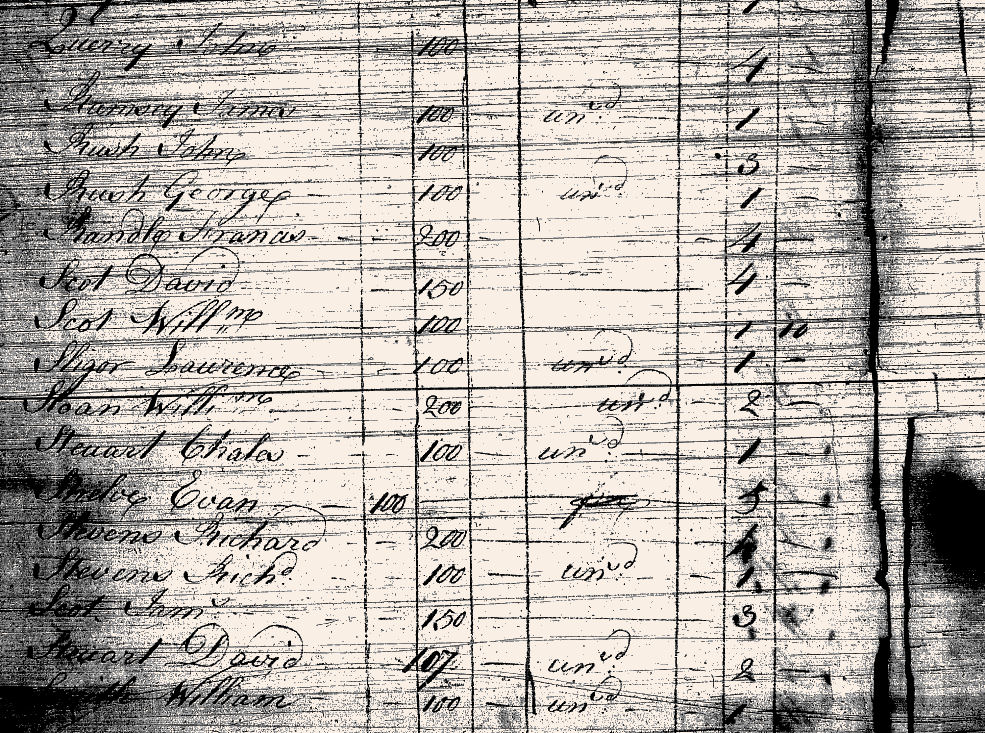 Querry John 100 4
Ramsey James 100 un.d 1
Rush John 100 3
Rush George 100 un.d 1
Handly Francis 200 4
Scot David 150 4
Scot Will,m 100 1 10
Lawrence 100 un.d 1
Sloan Will,m 200 un.d 2
Steuart Chales 100 un.d 1
Evan 100 5
Stevens Richard 200
Stevens Rich,d 100 un.d 1
150 3
Steuart David 107 un.d 2
Smith William 100 un.d 1